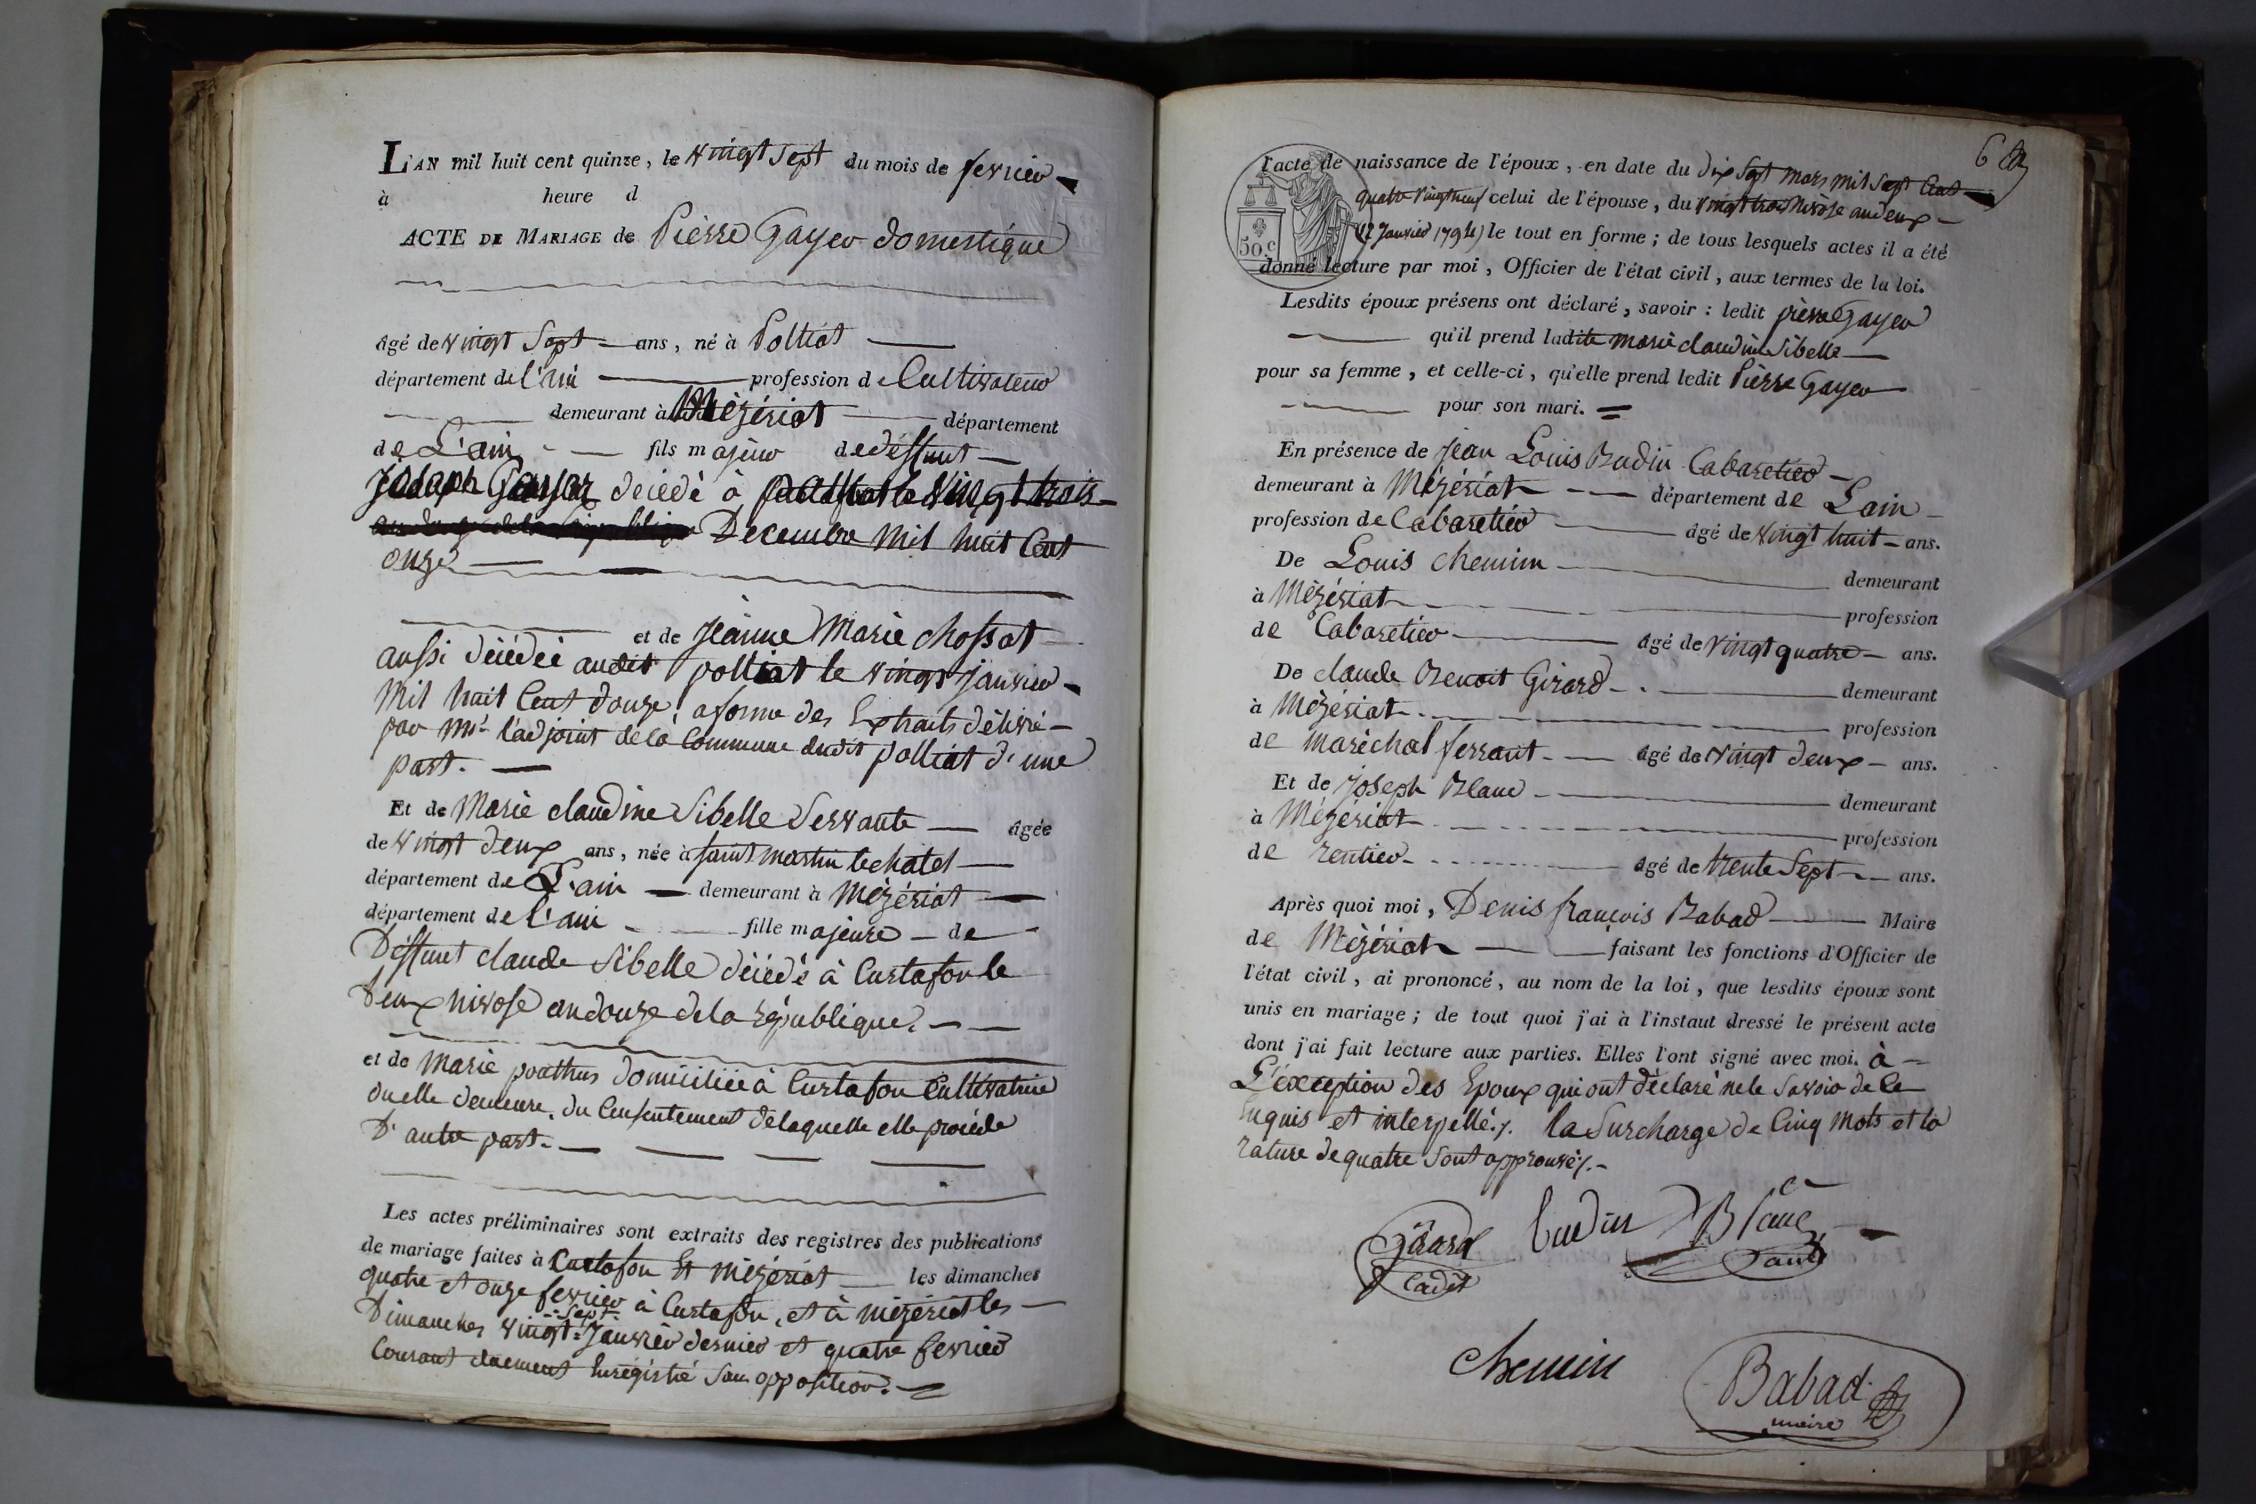 L'AN mil huit cent quinze, le vingt sept du mois de fevrier
à heure d
ACTE DE MARIAGE de Pierre Gayer domestique
âgé de vingt Sept ans, né à Polliat
département de l'ain profession de Cultivateur
demeurant à Mézériat département
de L'ain fils majeur de déffunt
Joseph Gayer décédé à polliat le vingt trois
Decembre mil huit Cent
onze
et de Jeanne Marie chossat
aussi décédée audit polliat le vingt janvier
mil huit Cent douze, a forme des Extraits délivré
par Mr. l'adjoint de la Commune dudit polliat d'une
part.
Et de Marie claudine Sibelle Servante âgée
de vingt deux ans, née à saint martin lechatel
département de L'ain demeurant à Mézériat
département de l'ain fille majeure de
Déffunt claude Sibelle décédé à Curtafon le
deux nivose an douze de la république
et de Marie poathus domiciliée à Curtafon Cultivatrice
ou elle demeure, du Consentement de laquelle elle procéde
D'autre part.
Les actes préliminaires sont extraits des registres des publications
de mariage faites à Curtafon Et mézériat les dimanches
quatre et onze fevrier à Curtafon, et à mézériat les
Sept
Dimanches vingt Janvier dernier et quatre fevrier
Courant duement Enregistré Sans opposition.
6
l'acte de naissance de l'époux, en date du dix Sept mars mil Sept Cent
quatre vingt neuf celui de l'épouse, du vingt trois Nivôse an deux
(12 Janvier 1794) le tout en forme; de tous lesquels actes il a été
50 c
donné lecture par moi, Officier de l'état civil, aux termes de la loi.
Lesdits époux présens ont déclaré, savoir: ledit pierre Gayer
qu'il prend ladite marie claudine Sibelle
pour sa femme, et celle-ci, qu'elle prend ledit Pierre Gayer
pour son mari.
En présence de Jean Louis Budin Cabaretier
demeurant à Mézériat département de L'ain
profession de Cabaretier âgé de vingt huit ans.
De Louis Chemin demeurant
à Mézériat profession
de Cabaretier âgé de vingt quatre ans.
De claude Benoit Girard demeurant
à Mézériat profession
de maréchal ferrant âgé de vingt deux ans.
Et de Joseph Blanc demeurant
à Mézériat profession
de rentier âgé de trente Sept ans.
Après quoi moi, Denis françois Babad Maire
de Mézériat faisant les fonctions d'Officier de
l'état civil, ai prononcé, au nom de la loi, que lesdits époux sont
unis en mariage; de tout quoi j'ai à l'instaut dressé le présent acte
dont j'ai fait lecture aux parties. Elles l'ont signé avec moi. à
L'exception des Epoux qui ont déclaré ne le Savoir de Ce
Enquis et interpellés. la Surcharge de Cinq mots et la
rature de quatre sont approuvés.
Girard budin Blanc
Cadet
Chemin Babad
maire